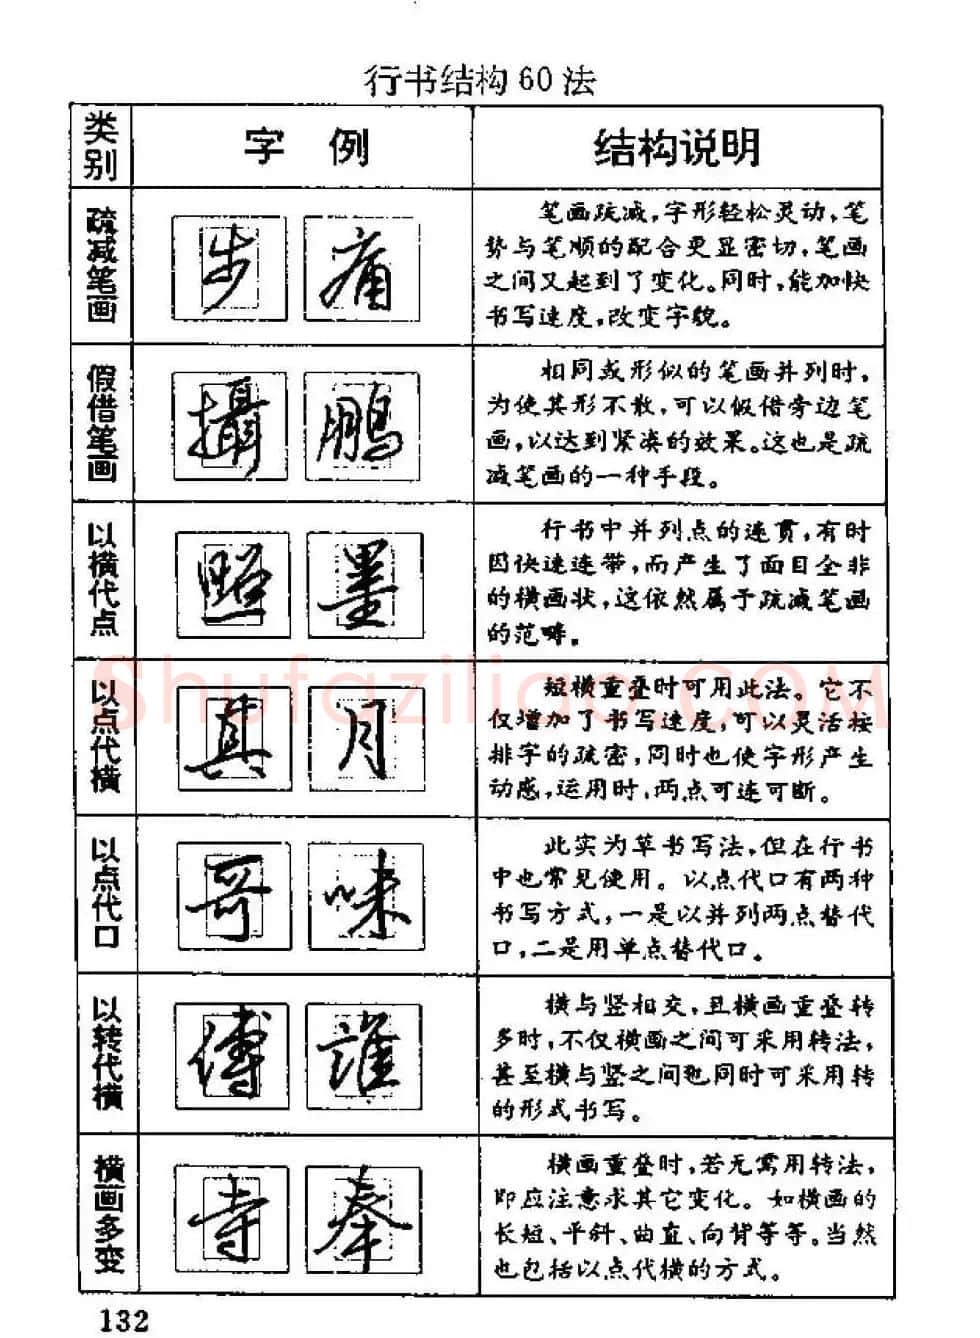 行书结构60法
类别 字例 结构说明
疏减笔画
步 痛
笔画疏减，字形轻松灵动，笔
势与笔顺的配合更显密切，笔画
之间又起到了变化。同时，能加快
书写速度，改变字貌。
假借笔画
摄 鹏
相同或形似的笔画并列时，
为使其形不散，可以假借旁边笔
画，以达到紧凑的效果。这也是疏
减笔画的一种手段。
以横代点
照 墨
行书中并列点的连贯，有时
因快速连带，而产生了面目全非
的横画状，这依然属于疏减笔画
的范畴。
以点代横
真 月
短横重叠时可用此法。它不
仅增加了书写速度，可以灵活按
排字的疏密，同时也使字形产生
动感，运用时，两点可连可断。
以点代口
哥 味
此实为草书写法，但在行书
中也常见使用。以点代口有两种
书写方式，一是以并列两点替代
口，二是用单点替代口。
以转代横
傅 谁
横与竖相交，且横画重叠转
多时，不仅横画之间可采用转法，
甚至横与竖之间也同时可采用转
的形式书写。
横画多变
寺 奉
横画重叠时，若无需用转法，
即应注意求其它变化。如横画的
长短、平斜、曲直、向背等等。当然
也包括以点代横的方式。
132
Shufaziliao.COM